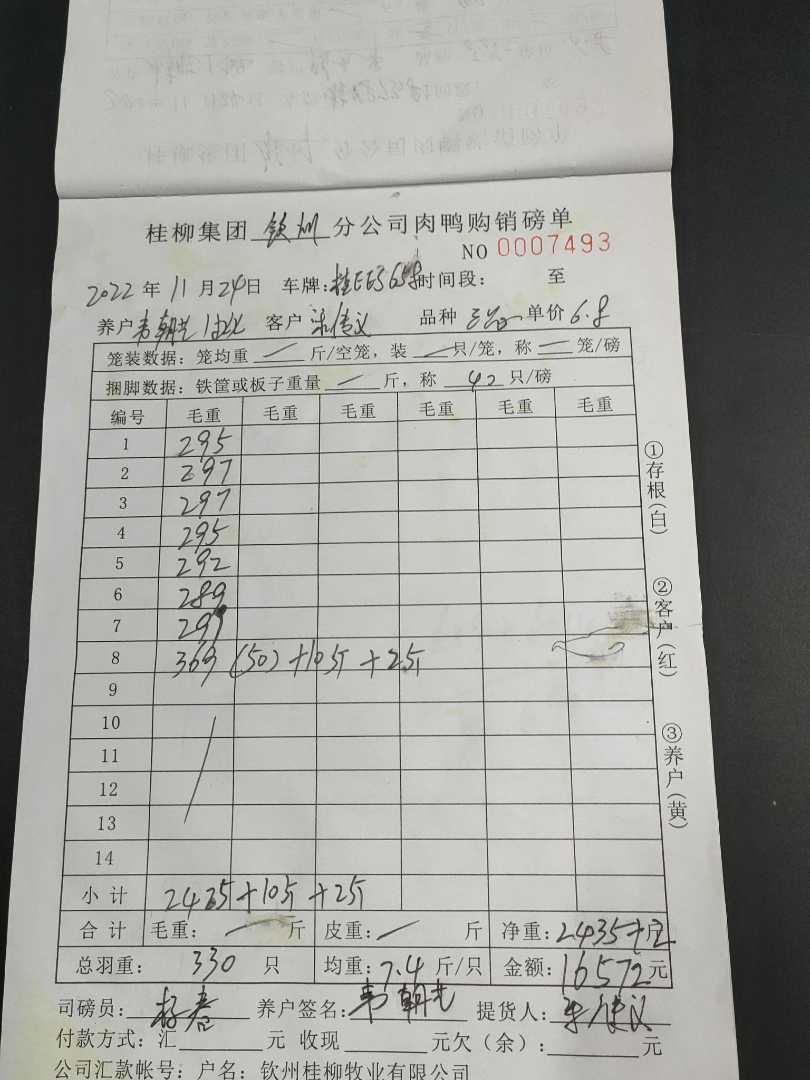 桂柳集团 钦州 分公司肉鸭购销磅单
NO 0007493
2022 年 11 月 24日 车牌: 时间段: 至
养户 韦朝光 客户 品种 单价 6.8
笼装数据: 笼均重 / 斤/空笼, 装 / 只/笼, 称 / 笼/磅
捆脚数据: 铁筐或板子重量 / 斤, 称 40 只/磅
编号 毛重 毛重 毛重 毛重 毛重 毛重
1 295
2 297
3 297
4 295
5 292
6 289
7
8 369 (50) +10斤 +2斤
9
10
11
12
13
14
小计 +10斤 +2斤
合计 毛重: / 斤 皮重: / 斤 净重: 2435 斤
总羽重: 330 只 均重: 7.4 斤/只 金额: 16572 元
司磅员: 养户签名: 韦朝光 提货人:
付款方式: 汇 元 收现 元欠(余): 元
公司汇款帐号: 户名: 钦州桂柳牧业有限公司
①存根(白)
②客户(红)
③养户(黄)